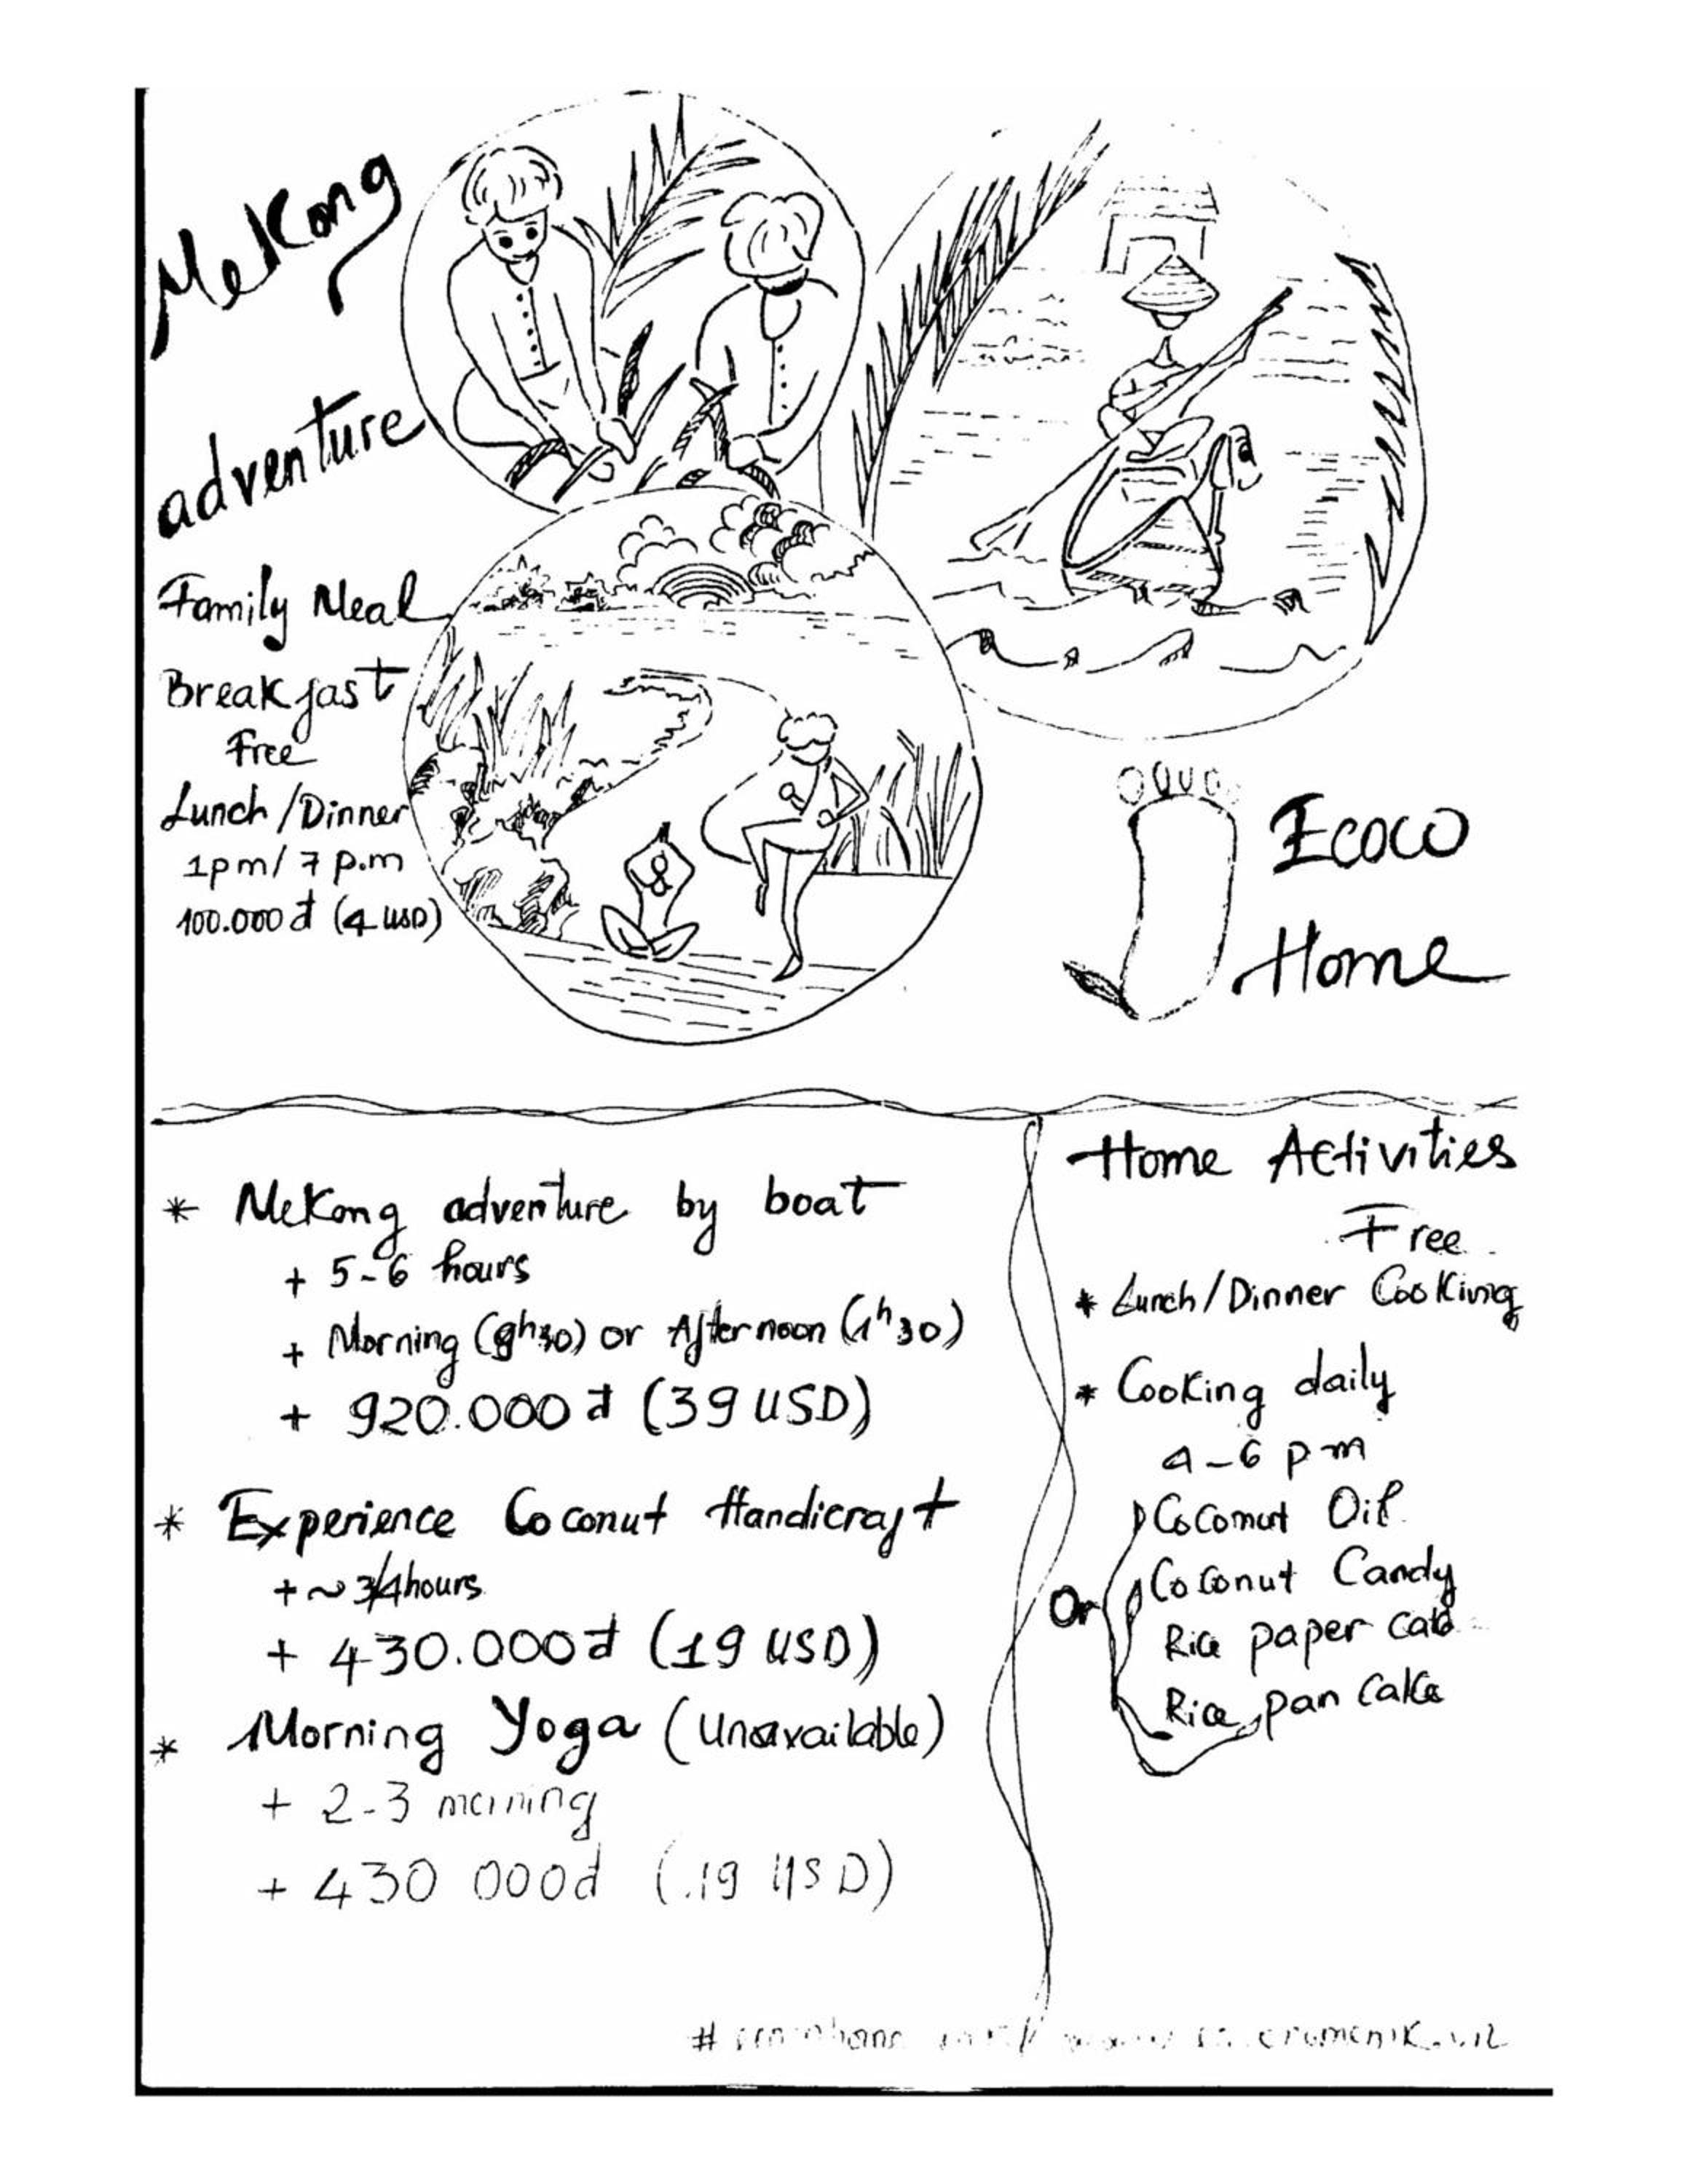 Mekong
adventure
Family Meal
Breakfast
Free
Lunch/Dinner
1pm/7 p.m
100.000 đ (4 USD)
Ecoco
Home
* Mekong adventure by boat
+ 5-6 hours
+ Morning (8h30) or Afternoon (1h30)
+ 920.000 đ (39 USD)
* Experience Coconut Handicraft
+ ~ 3/4 hours
+ 430.000đ (19 USD)
* Morning Yoga (Unavailable)
+ 2-3 morning
+ 430 000đ (19 USD)
Home Activities
Free
* Lunch/Dinner Cooking
* Cooking daily
4-6 pm
Or
Coconut Oil
Coconut Candy
Rice paper
Rice pan cake
#